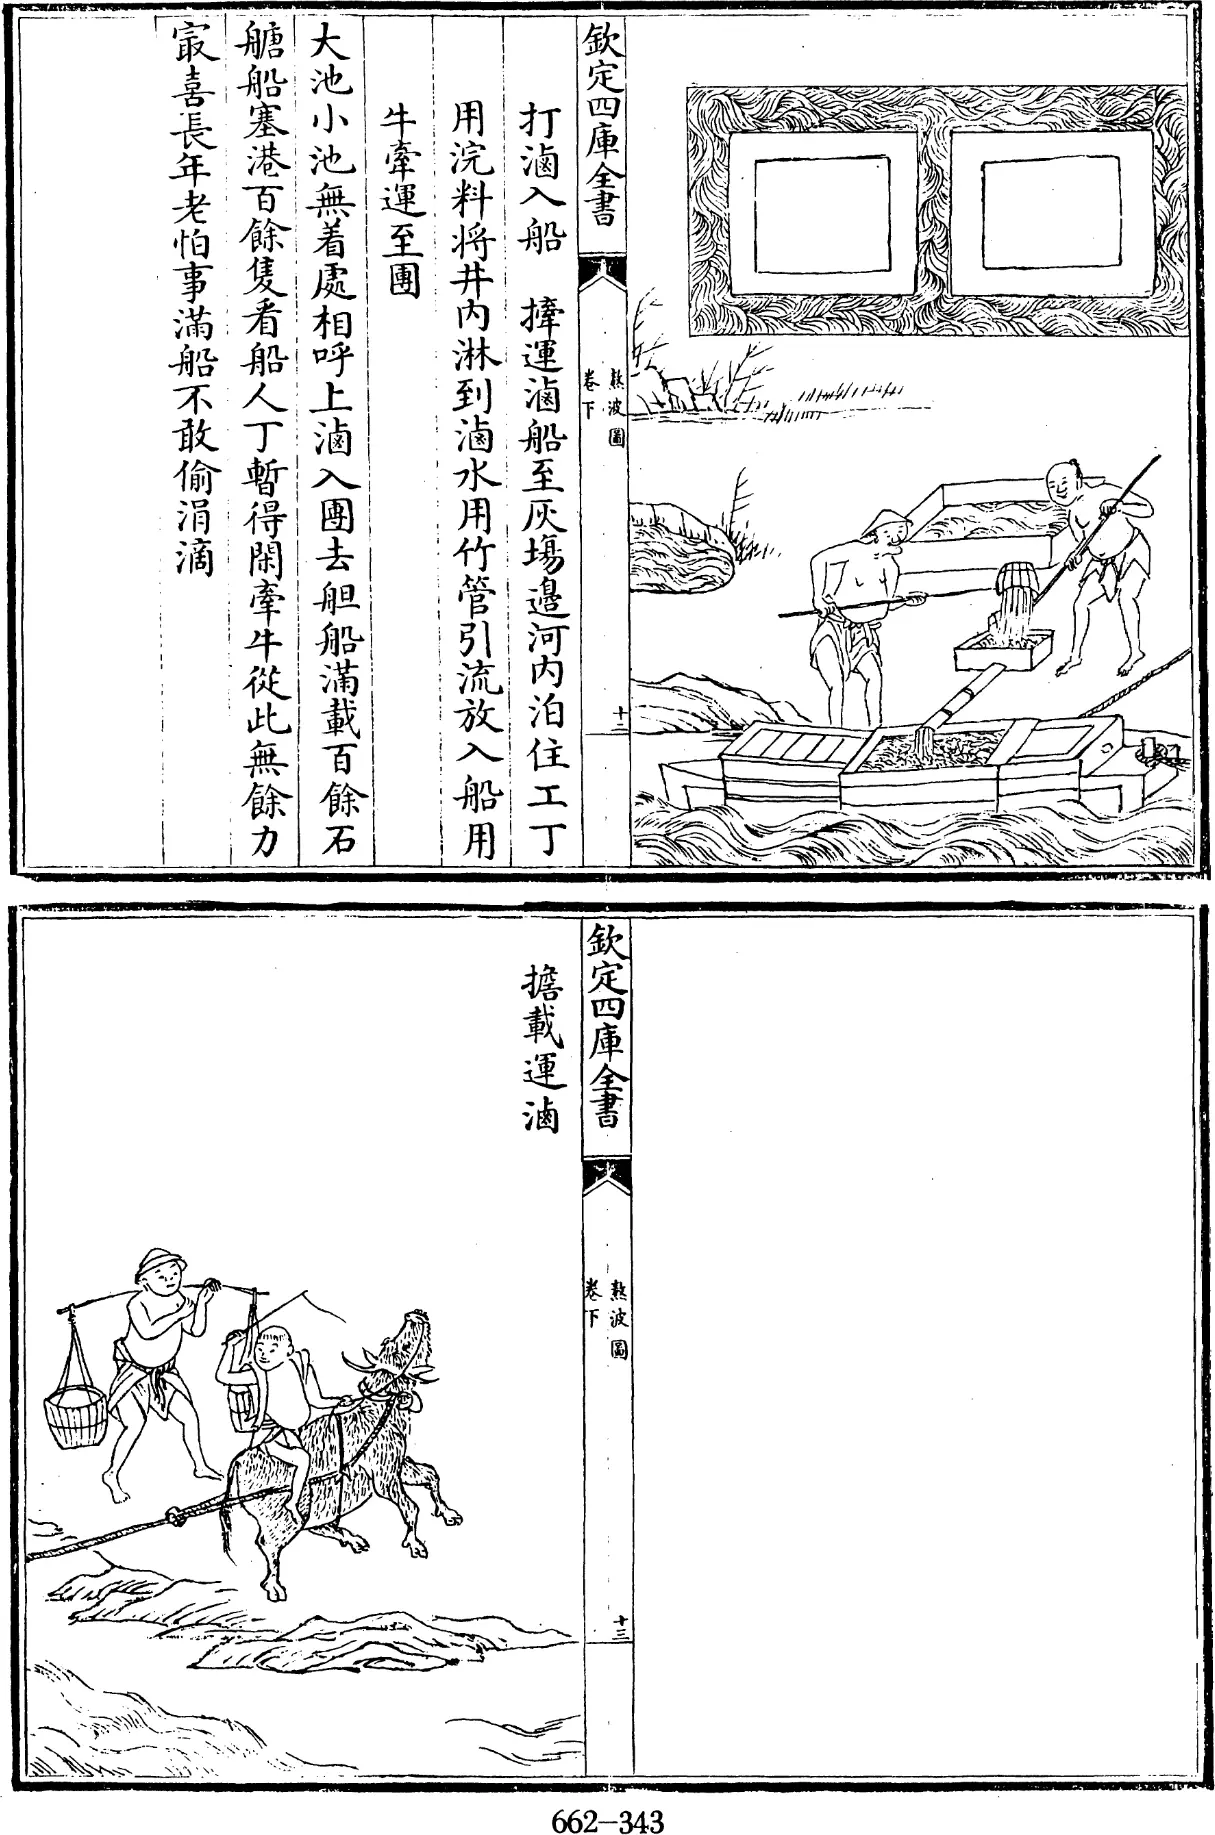 欽定四庫全書
熬波圖
卷下
十二
打滷入船　撁運滷船至灰塲邉河内泊住工丁
用浣料將井内淋到滷水用竹管引流放入船用
牛牽運至團
大池小池無着處相呼上滷入團去船滿載百餘石
船塞港百餘隻看船人丁暫得閑牽牛從此無餘力
㝡喜長年老怕事滿船不敢偷涓滴
欽定四庫全書
熬波圖
卷下
十三
擔載運滷
662-343